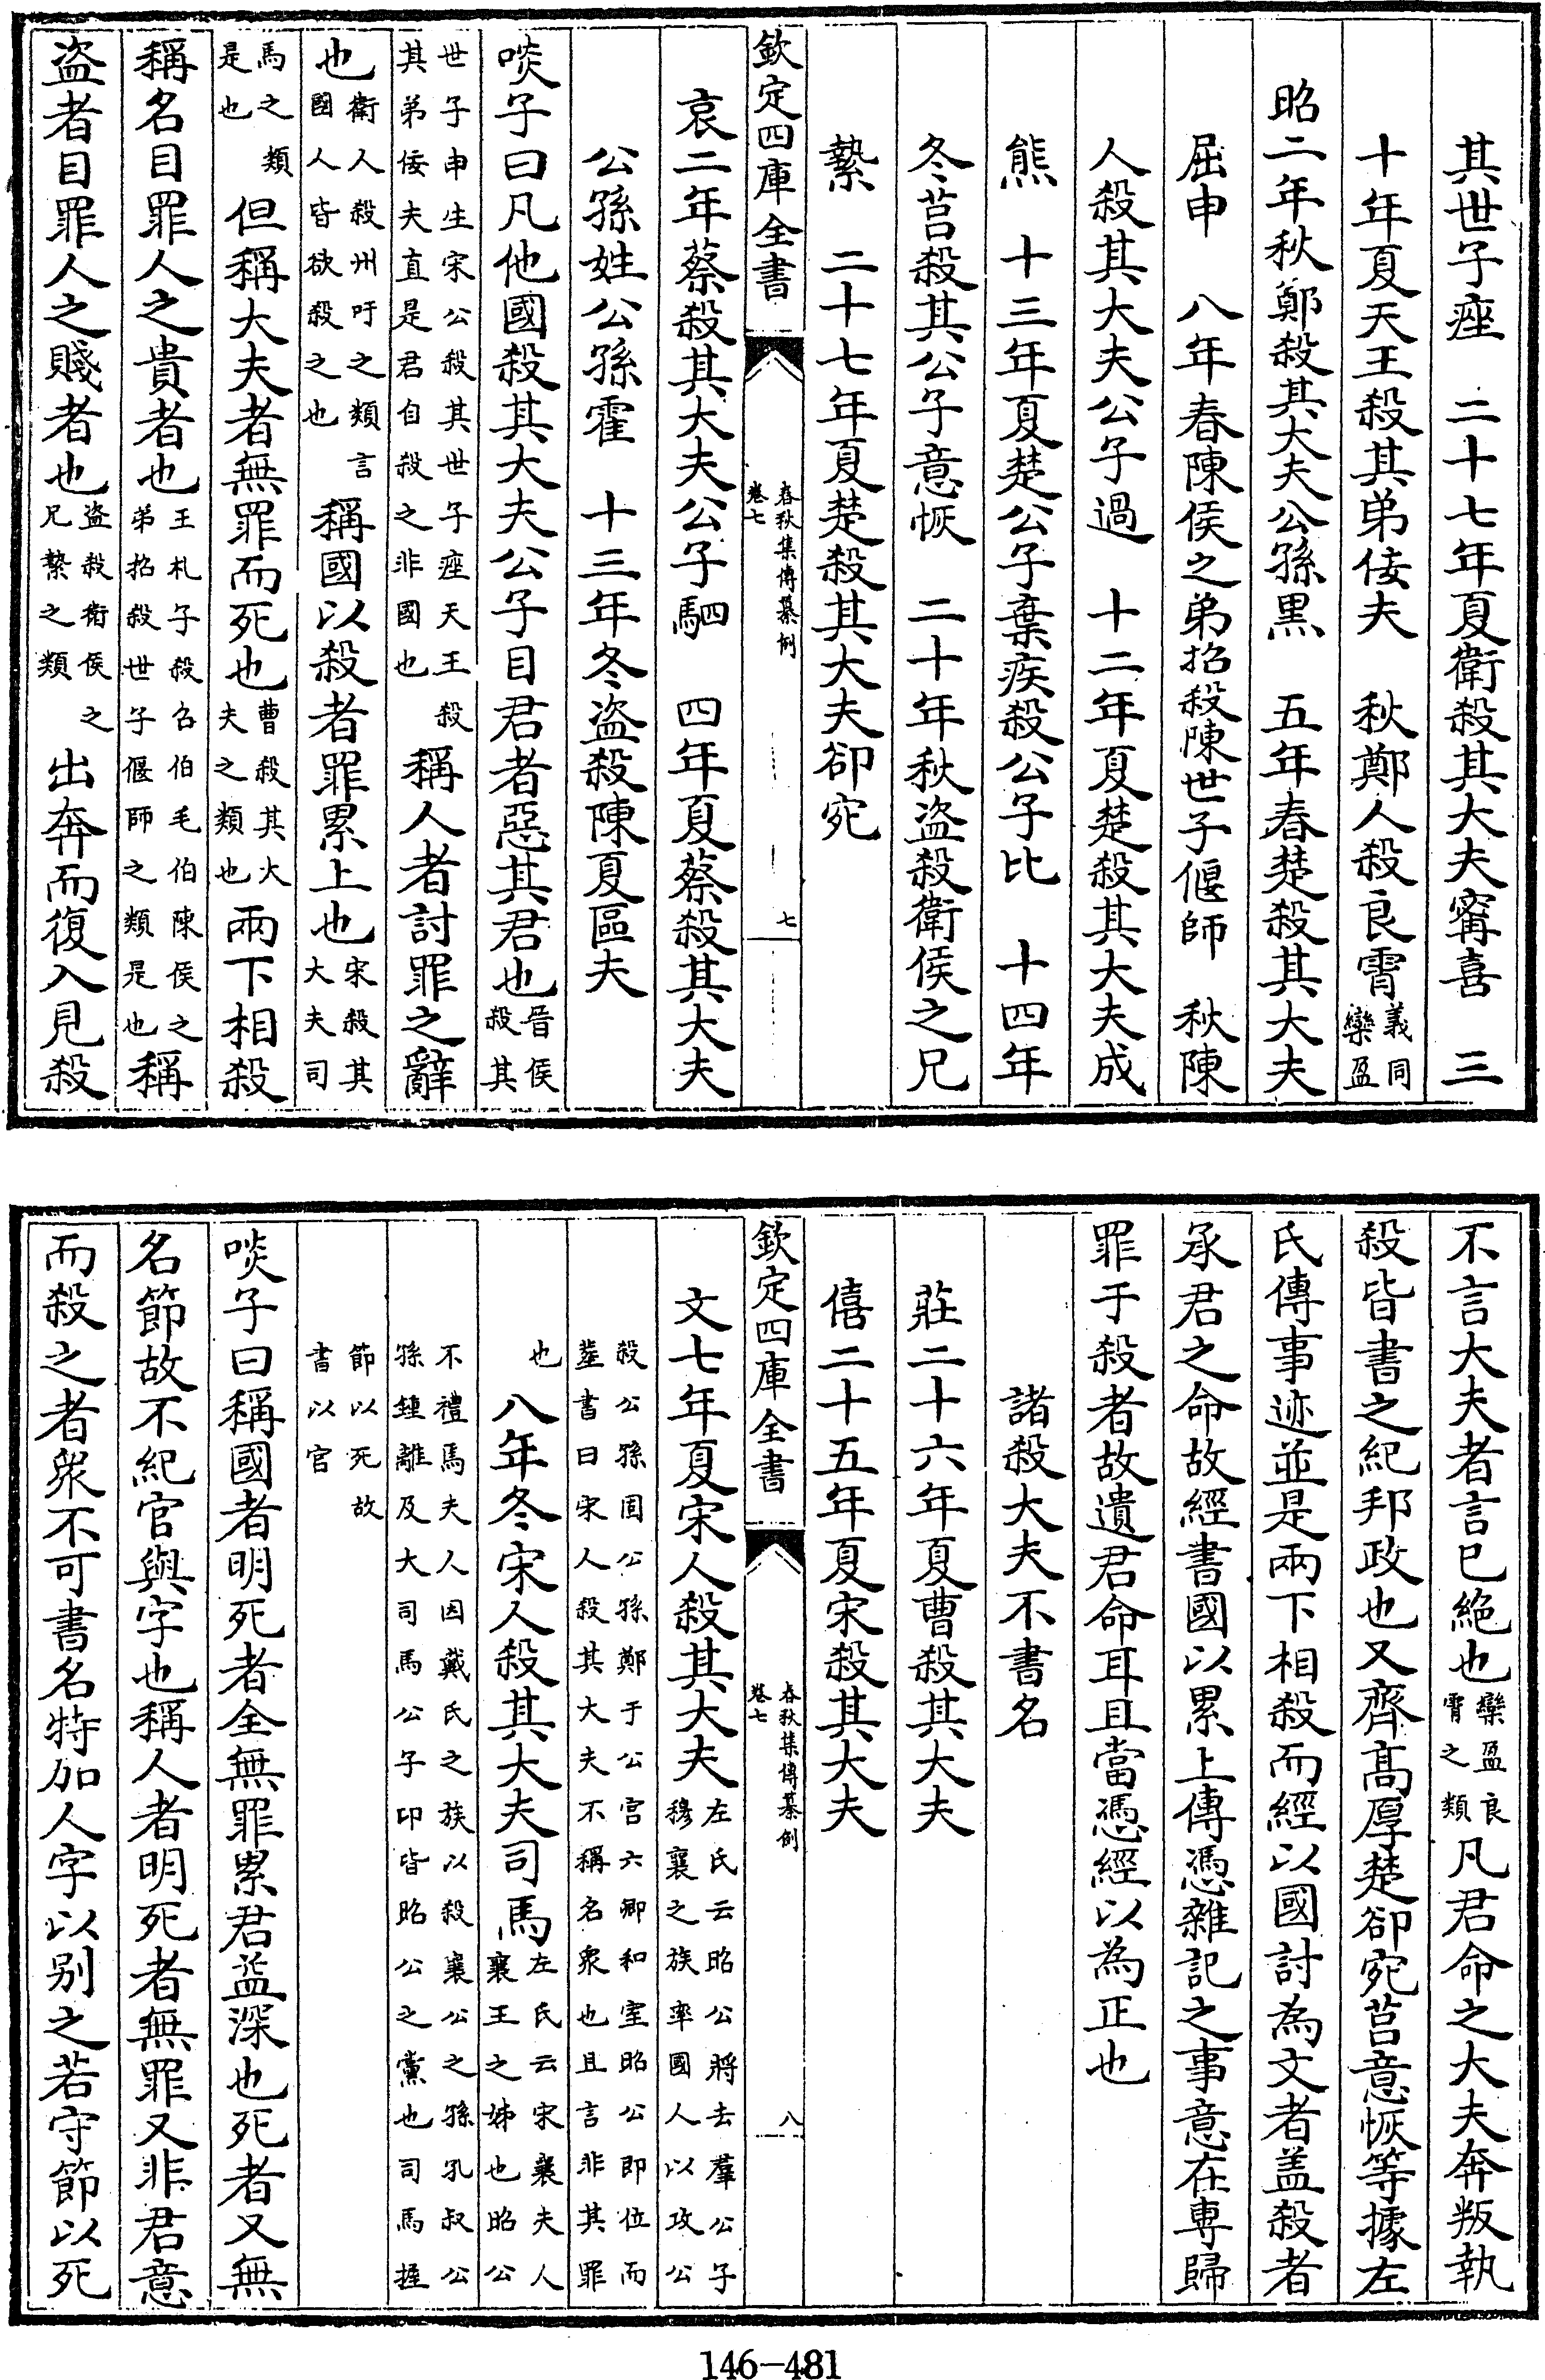 其世子痤　二十七年夏衛殺其大夫甯喜　三
十年夏天王殺其弟佞夫　秋鄭人殺良霄義同欒盈
昭二年秋鄭殺其大夫公孫黑　五年春楚殺其大夫
屈申　八年春陳侯之弟招殺陳世子偃師　秋陳
人殺其大夫公子過　十二年夏楚殺其大夫成
熊　十三年夏楚公子棄疾殺公子比　十四年
冬莒殺其公子意恢　二十年秋盜殺衛侯之兄
縶　二十七年夏楚殺其大夫卻宛
欽定四庫全書　春秋集傳纂例卷七　七
哀二年蔡殺其大夫公子駟　四年夏蔡殺其大夫
公孫姓公孫霍　十三年冬盜殺陳夏區夫
啖子曰凡他國殺其大夫公子目君者惡其君也晉侯殺其
世子申生宋公殺其世子痤天王殺其弟佞夫直是君自殺之非國也稱人者討罪之辭
也衛人殺州吁之類言國人皆欲殺之也稱國以殺者罪累上也宋殺其大夫司
馬之類是也但稱大夫者無罪而死也曹殺其大夫之類也兩下相殺
稱名目罪人之貴者也王札子殺召伯毛伯陳侯之弟招殺世子偃師之類是也稱
盜者目罪人之賤者也盜殺衛侯之兄縶之類出奔而復入見殺
不言大夫者言已絕也欒盈良霄之類凡君命之大夫奔叛執
殺皆書之紀邦政也又齊高厚楚卻宛莒意恢等據左
氏傳事迹並是兩下相殺而經以國討為文者蓋殺者
承君之命故經書國以累上傳憑雜記之事意在專歸
罪于殺者故遺君命耳且當憑經以為正也
諸殺大夫不書名
莊二十六年夏曹殺其大夫
僖二十五年夏宋殺其大夫
欽定四庫全書　春秋集傳纂例卷七　八
文七年夏宋人殺其大夫左氏云昭公將去羣公子穆襄之族率國人以攻公
殺公孫固公孫鄭于公宮六卿和室昭公即位而塟書曰宋人殺其大夫不稱名衆也且言非其罪
也　八年冬宋人殺其大夫司馬左氏云宋襄夫人襄王之姊也昭公
不禮焉夫人因戴氏之族以殺襄公之孫孔叔公孫鍾離及大司馬公子卬皆昭公之黨也司馬握
節以死故書以官
啖子曰稱國者明死者全無罪累君益深也死者又無
名節故不紀官與字也稱人者明死者無罪又非君意
而殺之者衆不可書名特加人字以別之若守節以死
146-481